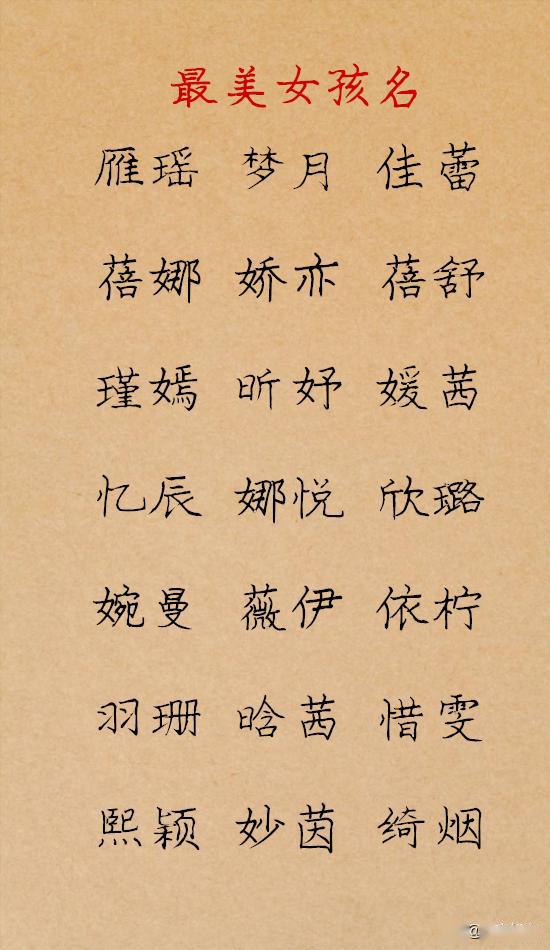 最美女孩名
雁瑶 梦月 佳蕾
蓓娜 娇亦 蓓舒
瑾嫣 昕妤 媛茜
忆辰 娜悦 欣璐
婉曼 薇伊 依柠
羽珊 晗茜 惜雯
熙颖 妙茵 绮烟
@